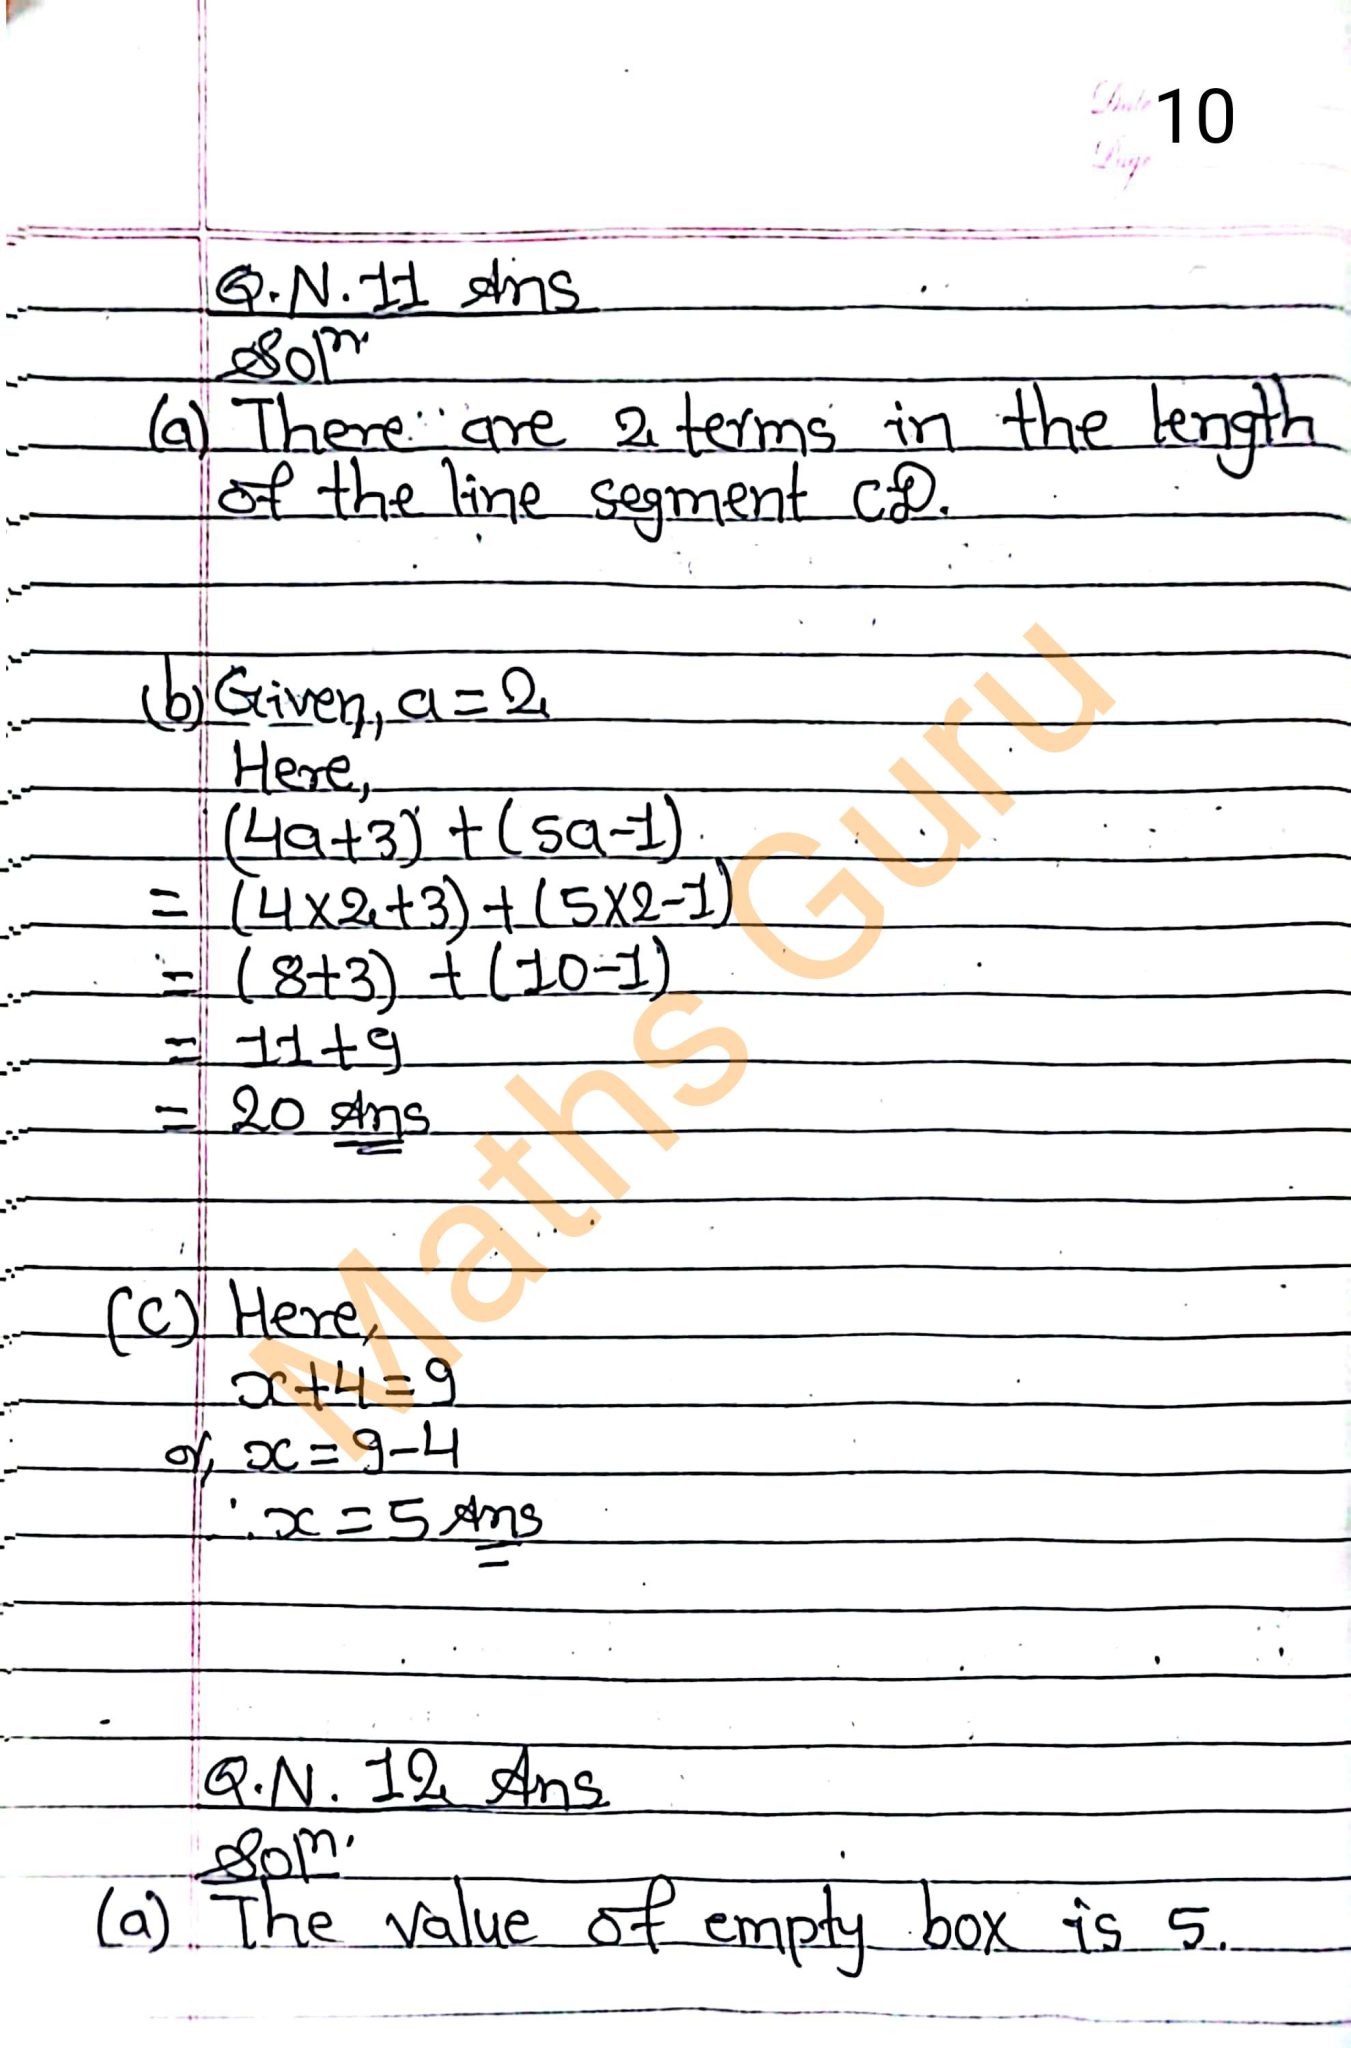 Date 10
Page
Q.N.11 Ans
Solⁿ
(a) There are 2 terms in the length
of the line segment CD.
(b) Given, a=2
Here,
(4a+3) + (5a-1)
= (4×2+3)+(5×2-1)
= (8+3) + (10-1)
= 11+9
= 20 Ans
(c) Here,
x+4=9
or, x=9-4
∴x=5 Ans
Q.N. 12 Ans
Solⁿ.
(a) The value of empty box is 5.
Maths Guru